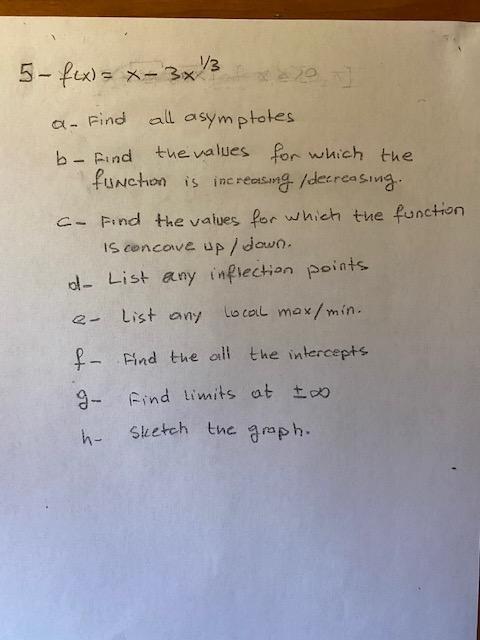 5- f(x) = x - 3x^1/3
a- Find all asymptotes
b- Find the values for which the
function is increasing /decreasing.
c- Find the values for which the function
is concave up / down.
d- List any inflection points
e- List any local max/min.
f- Find the all the intercepts
g- Find limits at ±∞
h- Sketch the graph.